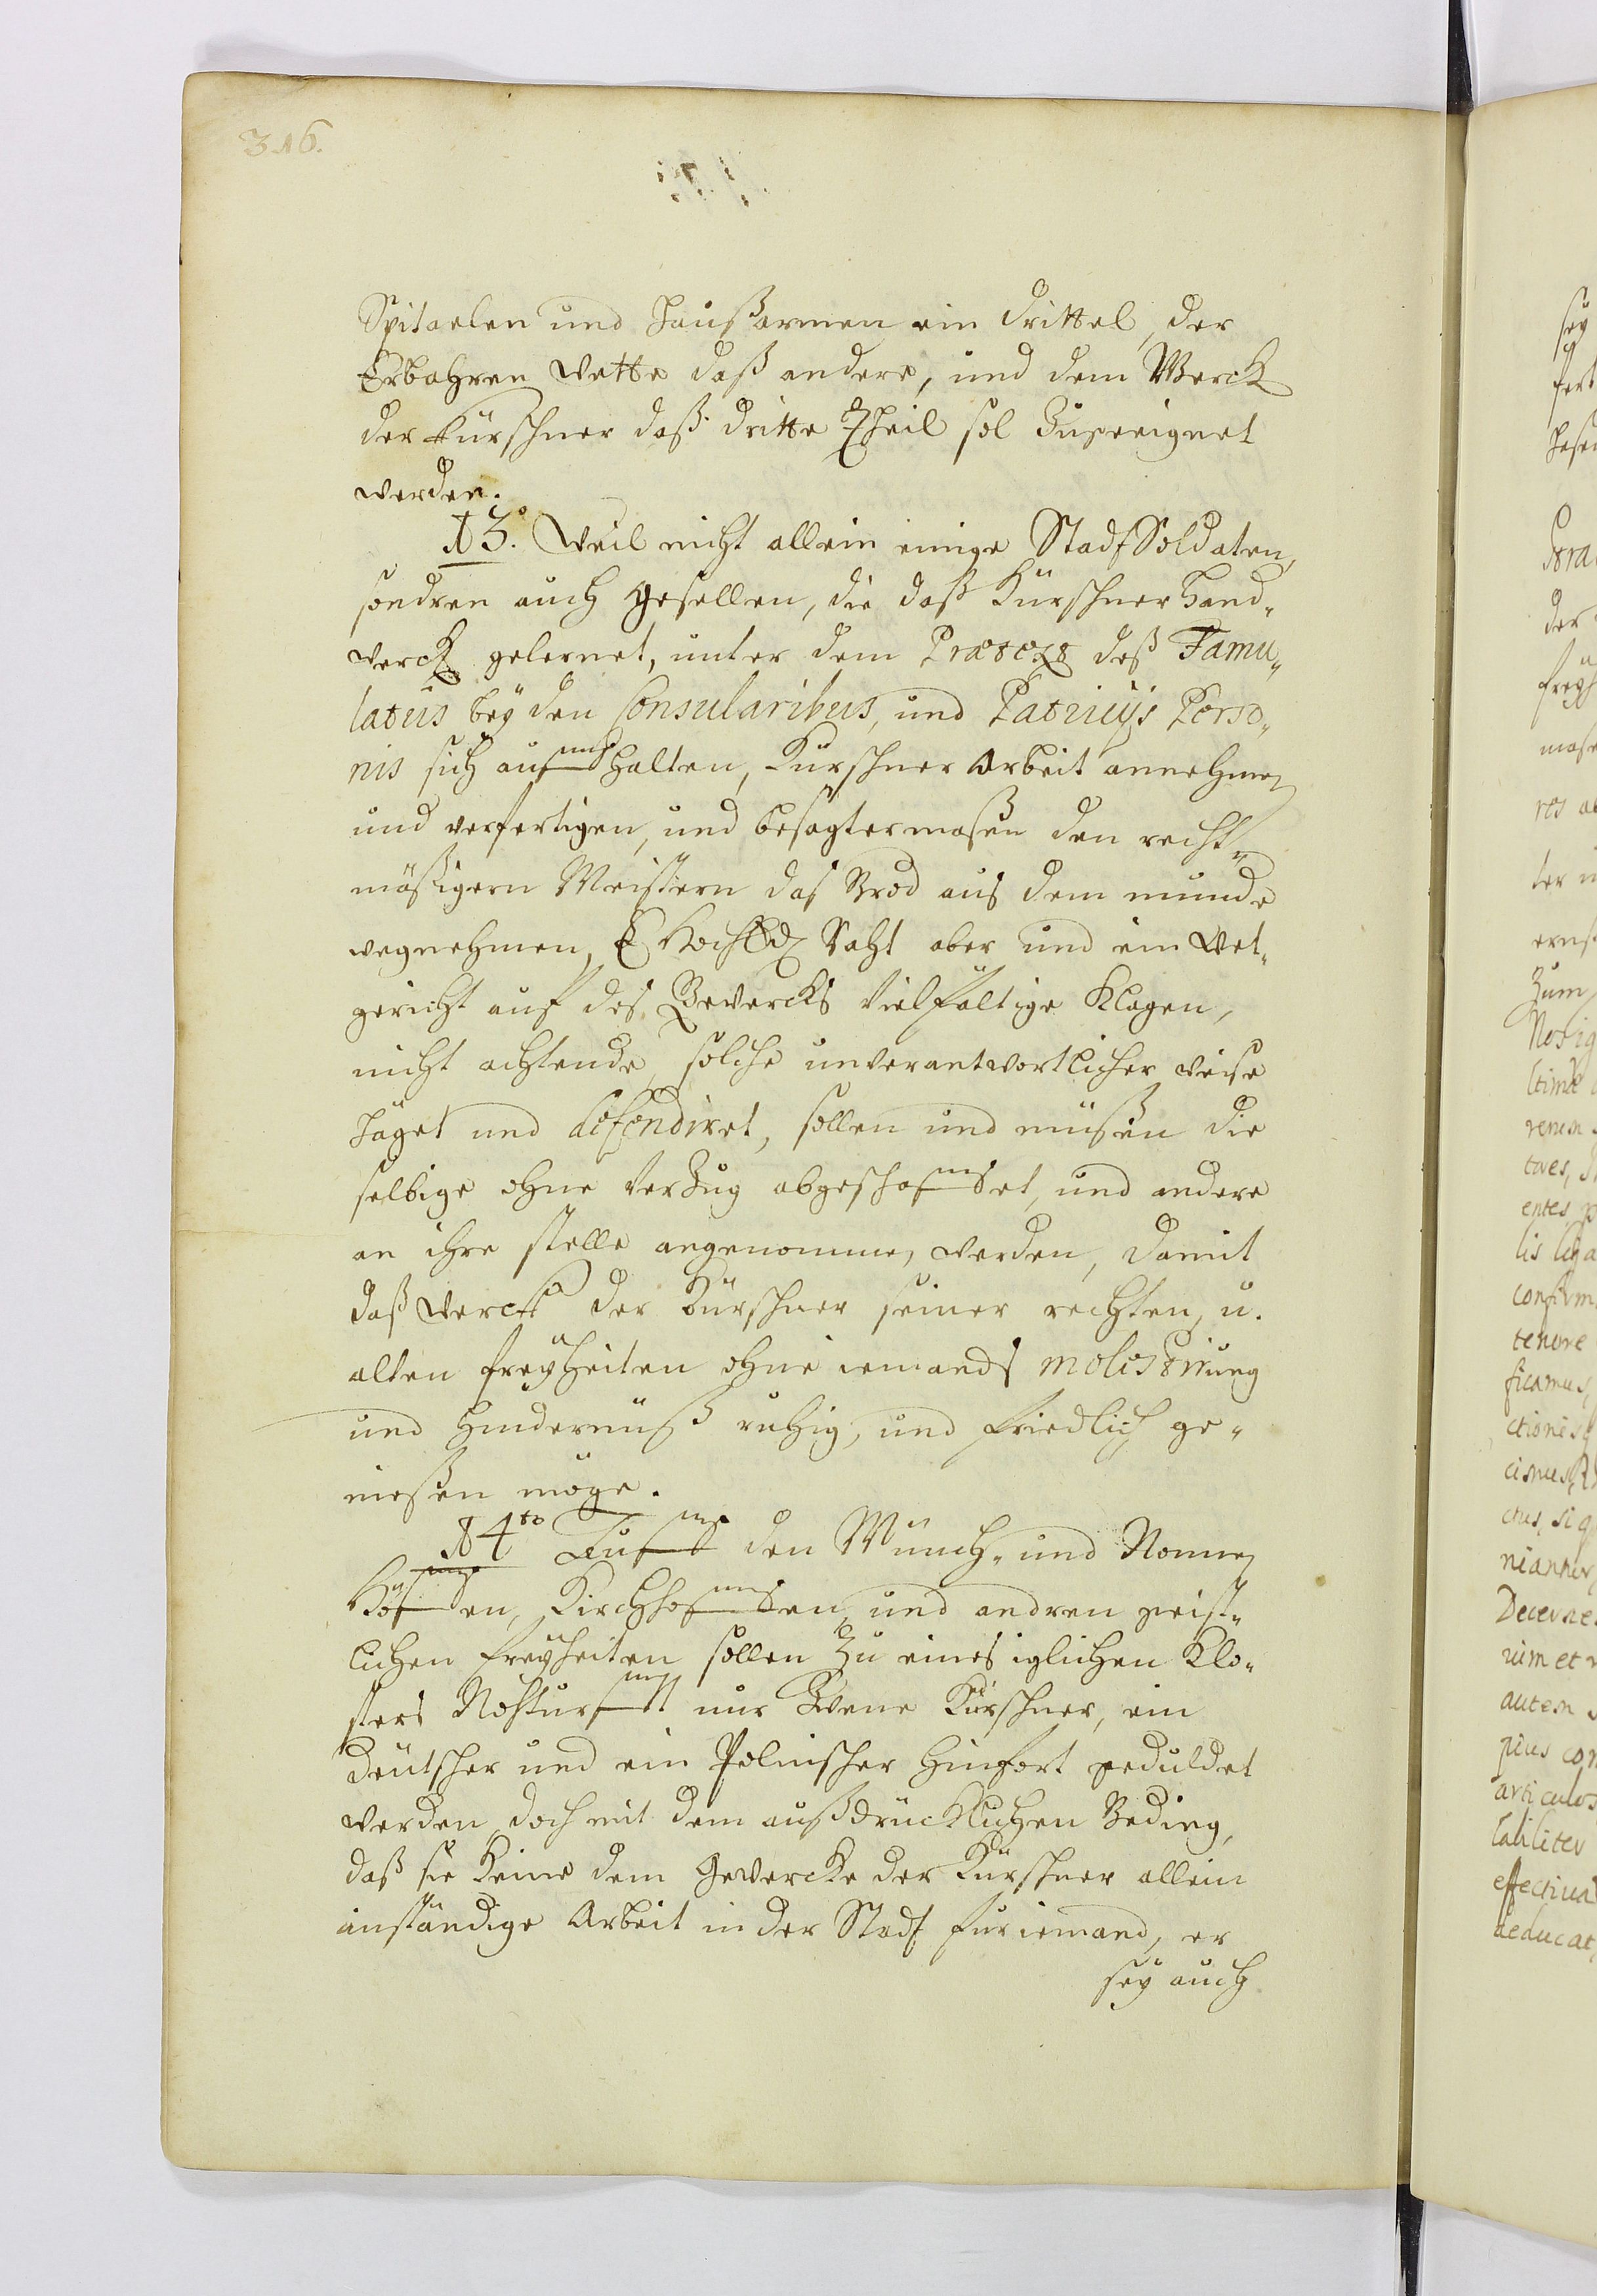 316.
Spitaelen und Haußarmen ein drittel, der
Erbahren Wette daß andere, und dem Werck
der Kürschner daß dritte Theil sol Zugeeignet
werden.
13. Weil nicht allein einige StadtSoldaten,
sondren auch Gesellen, die daß Kürschner Hand„
werck gelernet, unter dem Prætext deß Famu„
latus beÿ den Consularibus, und Patricijs Perso„
nis sich auffhalten, Kürschner Arbeit annehmen
und verfertigen, und besagtermaßen den recht„
mäßigern Meistern das Brod aus dem munde
wegnehmen, E Hoch Raht aber und ein Wet„
gericht auf des Gewercks Vielfältige Klagen,
nicht achtende, solche unverantwortlicher weise
Häget und defendiret, sollen und müßen die
selbige ohne VerZug abgeschaffet, und andere
an ihre stelle angenommen, werden, damit
daß werck der Kürschner seiner rechten, u.
alten freÿheiten ohne iemands molestirung
und Hindernüß ruhig, und friedlich ge„
nießen möge.
14to Auff den Münch„ und Nonnen
Höffen, Kirchhoffen, und andren geist„
lichen freÿheiten sollen Zu eines iglichen Klo„
sters Nohturfft nur Zwene Kürschner, ein
Deütscher und ein Polnischer Hinfort geduldet
werden, doch mit dem außdrücklichen Beding,
daß sie Keine dem Gewercke der Kürschner allein
anständige Arbeit in der Stadt für iemand, er
seÿ auch
seÿ
der
freÿh
res
ter
Zum
tenore
ficamus,
Decerne
rum et
autem
pius con
articulos
effectiua
deducat,